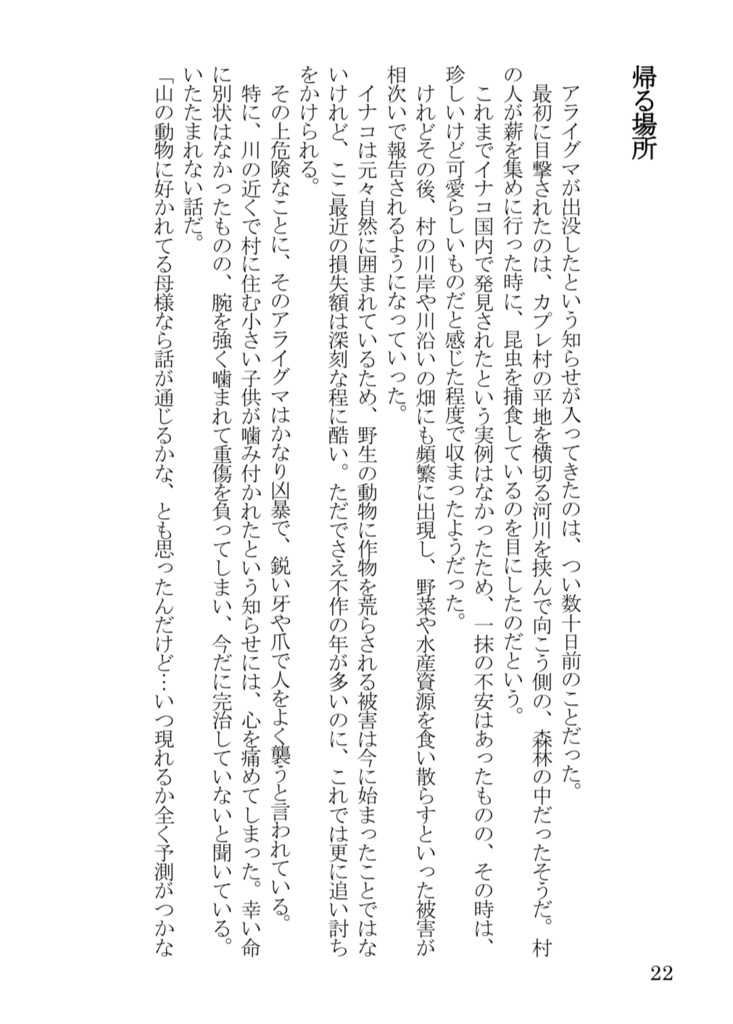 帰る場所
アライグマが出没したという知らせが入ってきたのは、つい数十日前のことだった。
最初に目撃されたのは、カプレ村の平地を横切る河川を挟んで向こう側の、森林の中だったそうだ。村
の人が薪を集めに行った時に、昆虫を捕食しているのを目にしたのだという。
これまでイナコ国内で発見されたという実例はなかったため、一抹の不安はあったものの、その時は、
珍しいけど可愛らしいものだと感じた程度で収まったようだった。
けれどその後、村の川岸や川沿いの畑にも頻繁に出現し、野菜や水産資源を食い散らすといった被害が
相次いで報告されるようになっていった。
イナコは元々自然に囲まれているため、野生の動物に作物を荒らされる被害は今に始まったことではな
いけれど、ここ最近の損失額は深刻な程に酷い。ただでさえ不作の年が多いのに、これでは更に追い討ち
をかけられる。
その上危険なことに、そのアライグマはかなり凶暴で、鋭い牙や爪で人をよく襲うと言われている。
特に、川の近くで村に住む小さい子供が噛み付かれたという知らせには、心を痛めてしまった。幸い命
に別状はなかったものの、腕を強く噛まれて重傷を負ってしまい、今だに完治していないと聞いている。
いたたまれない話だ。
「山の動物に好かれてる母様なら話が通じるかな、とも思ったんだけど…いつ現れるか全く予測がつかな
22